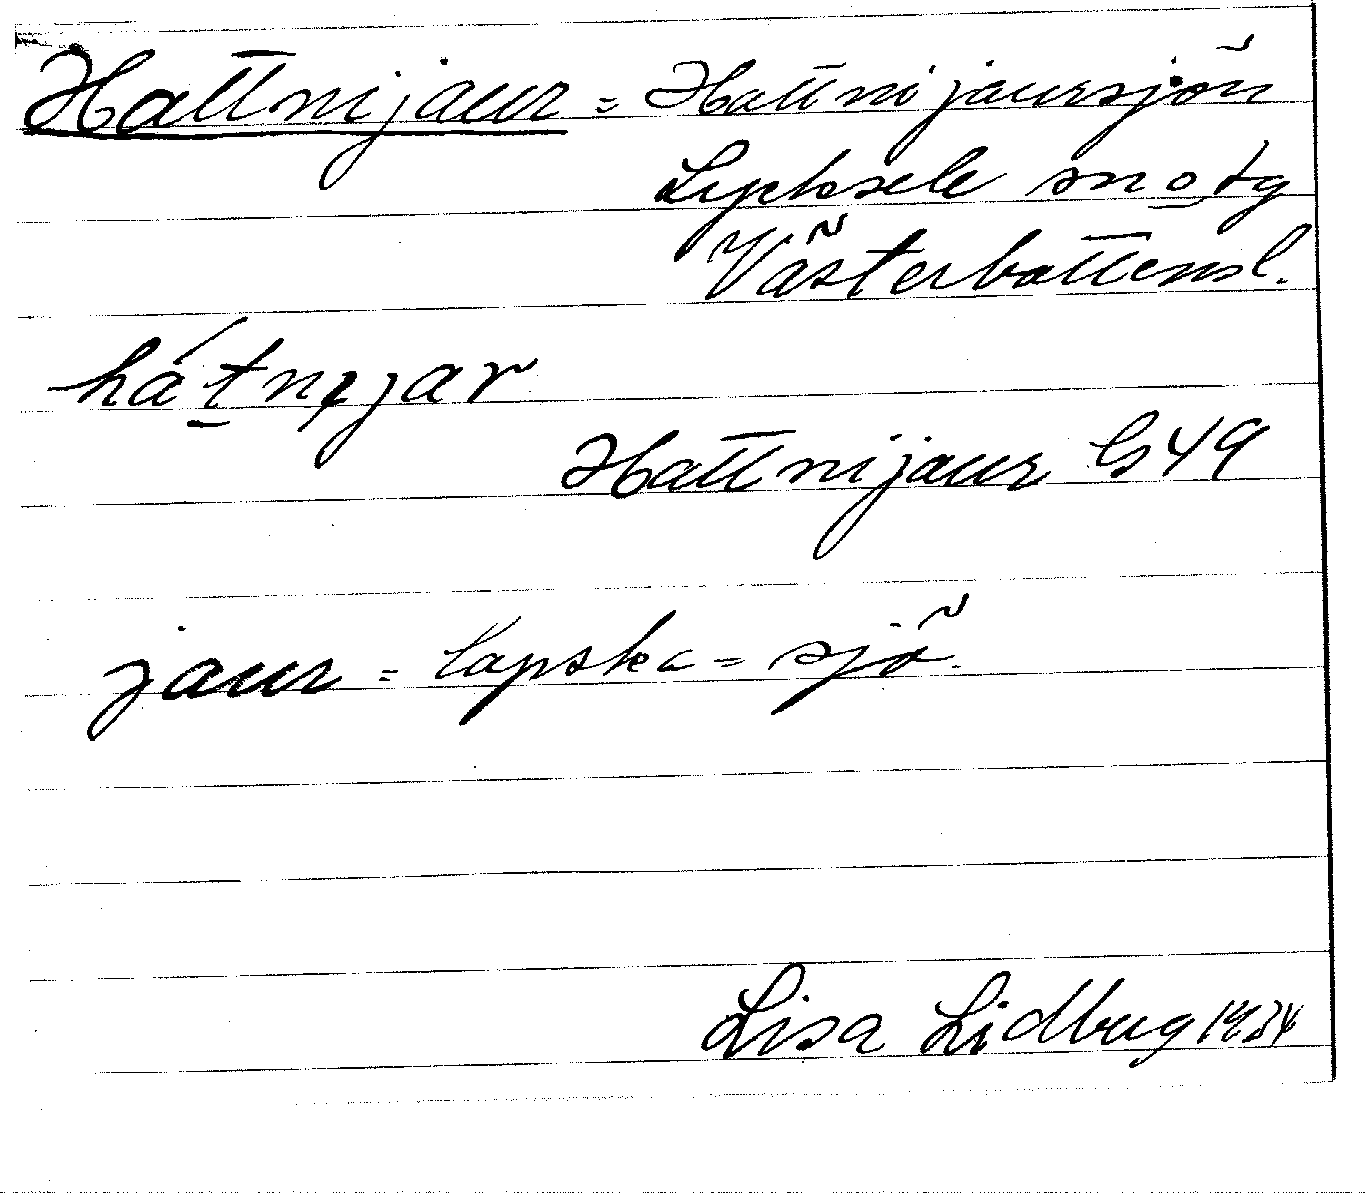 Hattnijaur = Hattnijaursjön
Lycksele sn o tg
Västerbottensl.
hátnıjar
Hattnijaur G 49
jaur = lapska = sjö.
Lisa Lidberg 1934